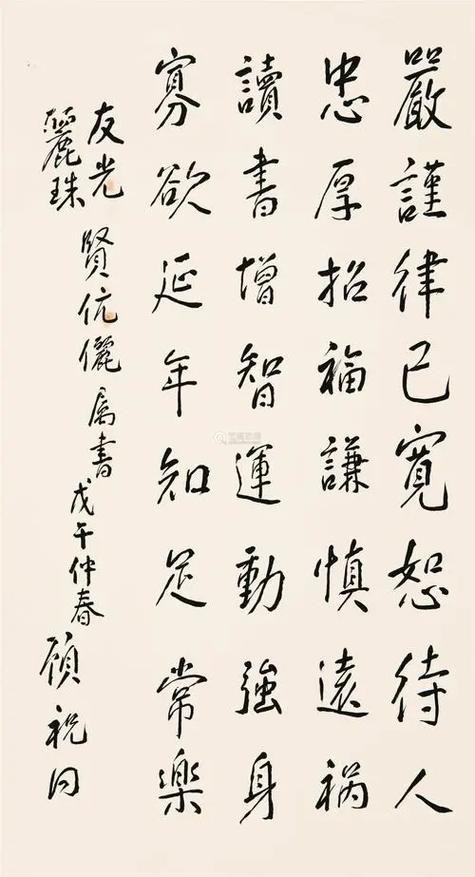 嚴謹律己寬恕待人
忠厚招福謙慎遠禍
讀書增智運動強身
寡欲延年知足常樂
友光
麗珠
賢伉儷属書
戊午仲春
顾祝同